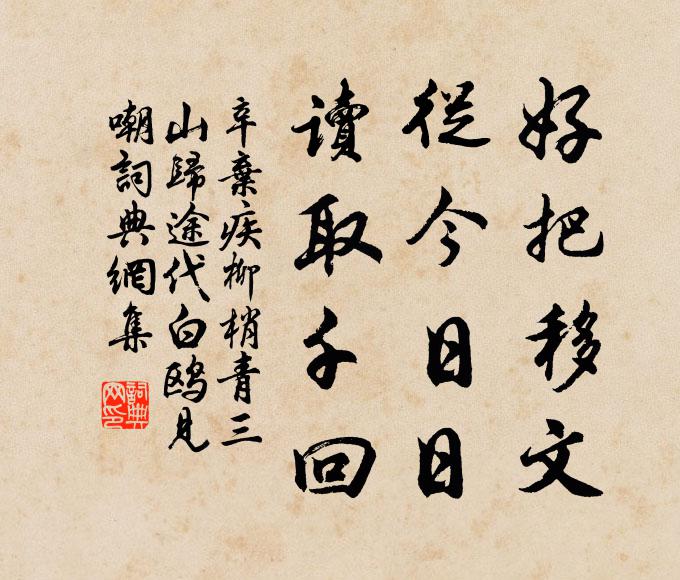 好把移文
從今日日
讀取千回
辛棄疾柳梢青三
山歸途代白鸥見
嘲詞典網集
詞典网印